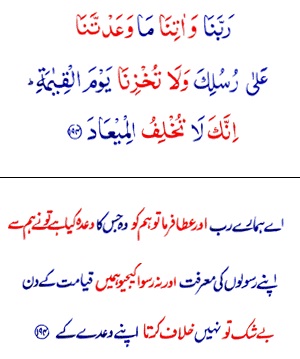 رَبَّنَا وَاٰتِنَا مَا وَعَدْتَّنَا
عَلٰى رُسُلِكَ وَلَا تُخْزِنَا يَوْمَ الْقِيٰمَةِ ؕ
اِنَّكَ لَا تُخْلِفُ الْمِيْعَادَ ﴿۱۹۴﴾
اے ہمارے رب اور عطا فرما تو ہم کو وہ جس کا وعدہ کیا ہے تو نے ہم سے
اپنے رسولوں کی معرفت اور نہ رسوا کیجیو ہمیں قیامت کے دن
بے شک تو نہیں خلاف کرتا اپنے وعدے کے